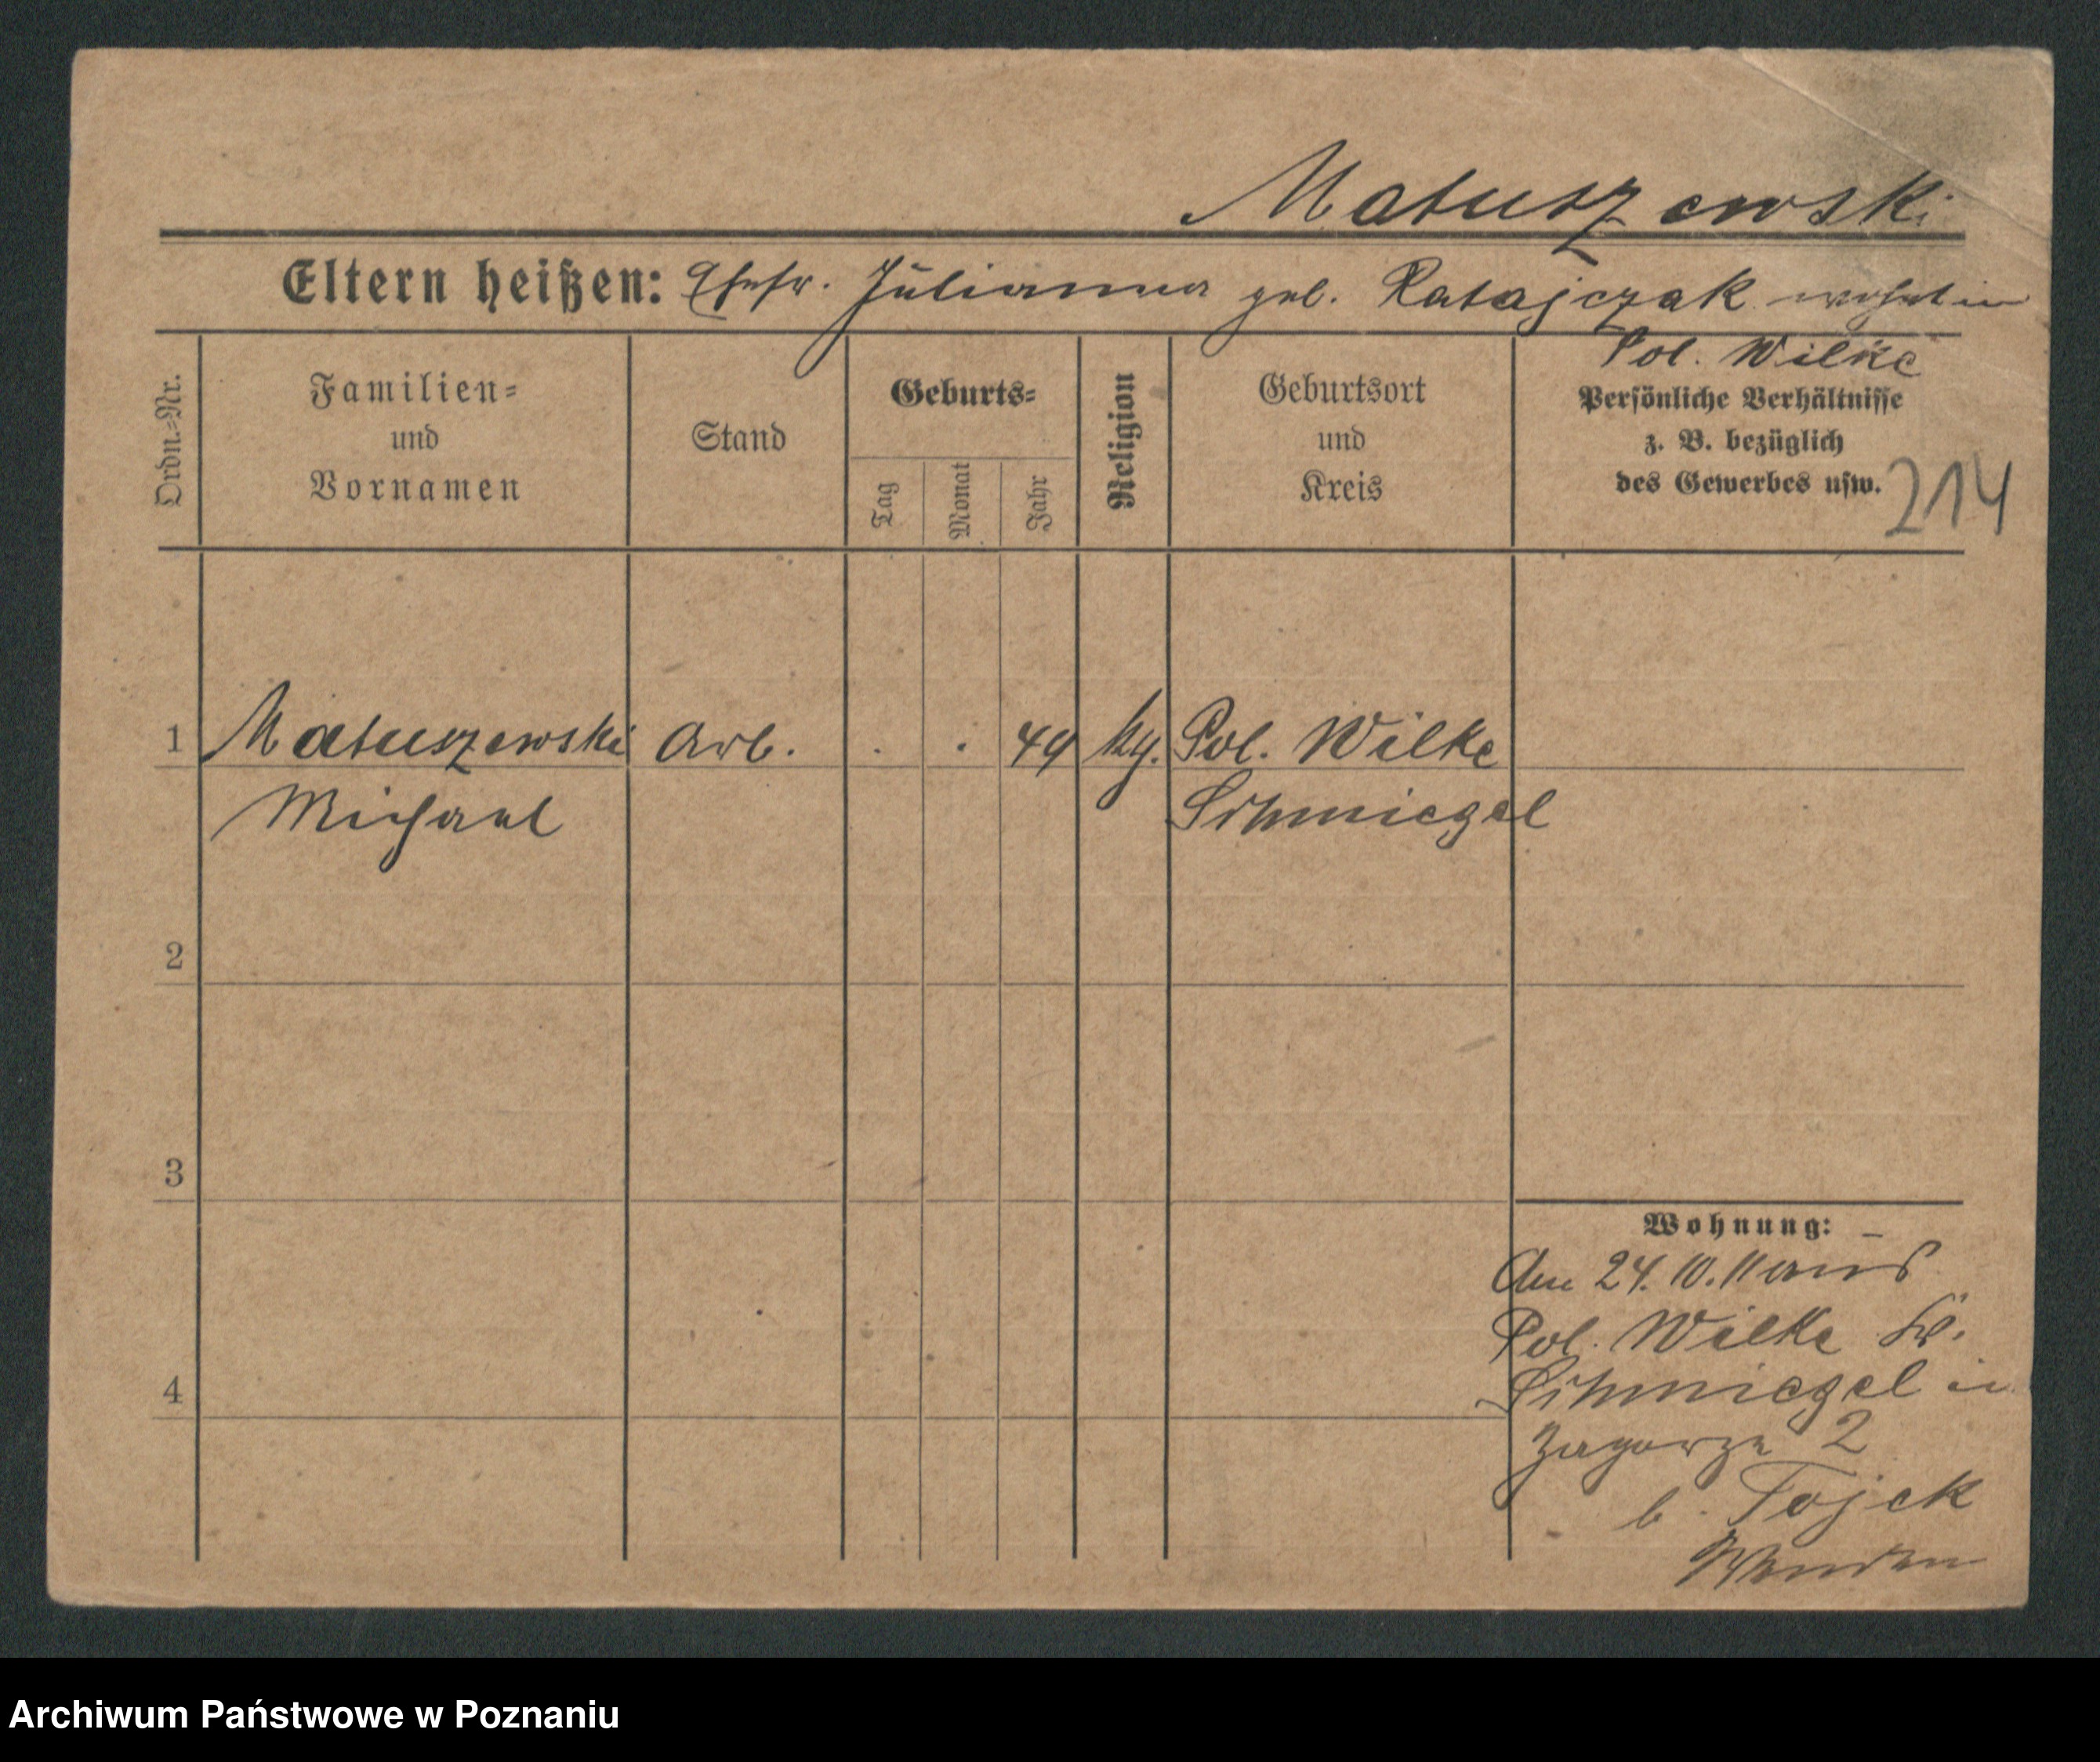 Matuszewski
Eltern heißen: Ehefr. Julianna geb. Ratajczak wohnt in
Pol. Wilke
Ordn.=Nr.
Familien=
und
Vornamen
Stand
Geburts=
Tag
Monat
Jahr
Religion
Geburtsort
und
Kreis
Persönliche Verhältnisse
z. B. bezüglich
des Gewerbes usw.
214
1 Matuszewski Arb. . . 49 kg. Pol. Wilke
Michael Schmiegel
2
3
4
Wohnung: –
Am 24.10.11 aus
Pol. Wilke Kr.
Schmiegel in
Zagorze 2
b. Tojek
Wenden
Archiwum Państwowe w Poznaniu